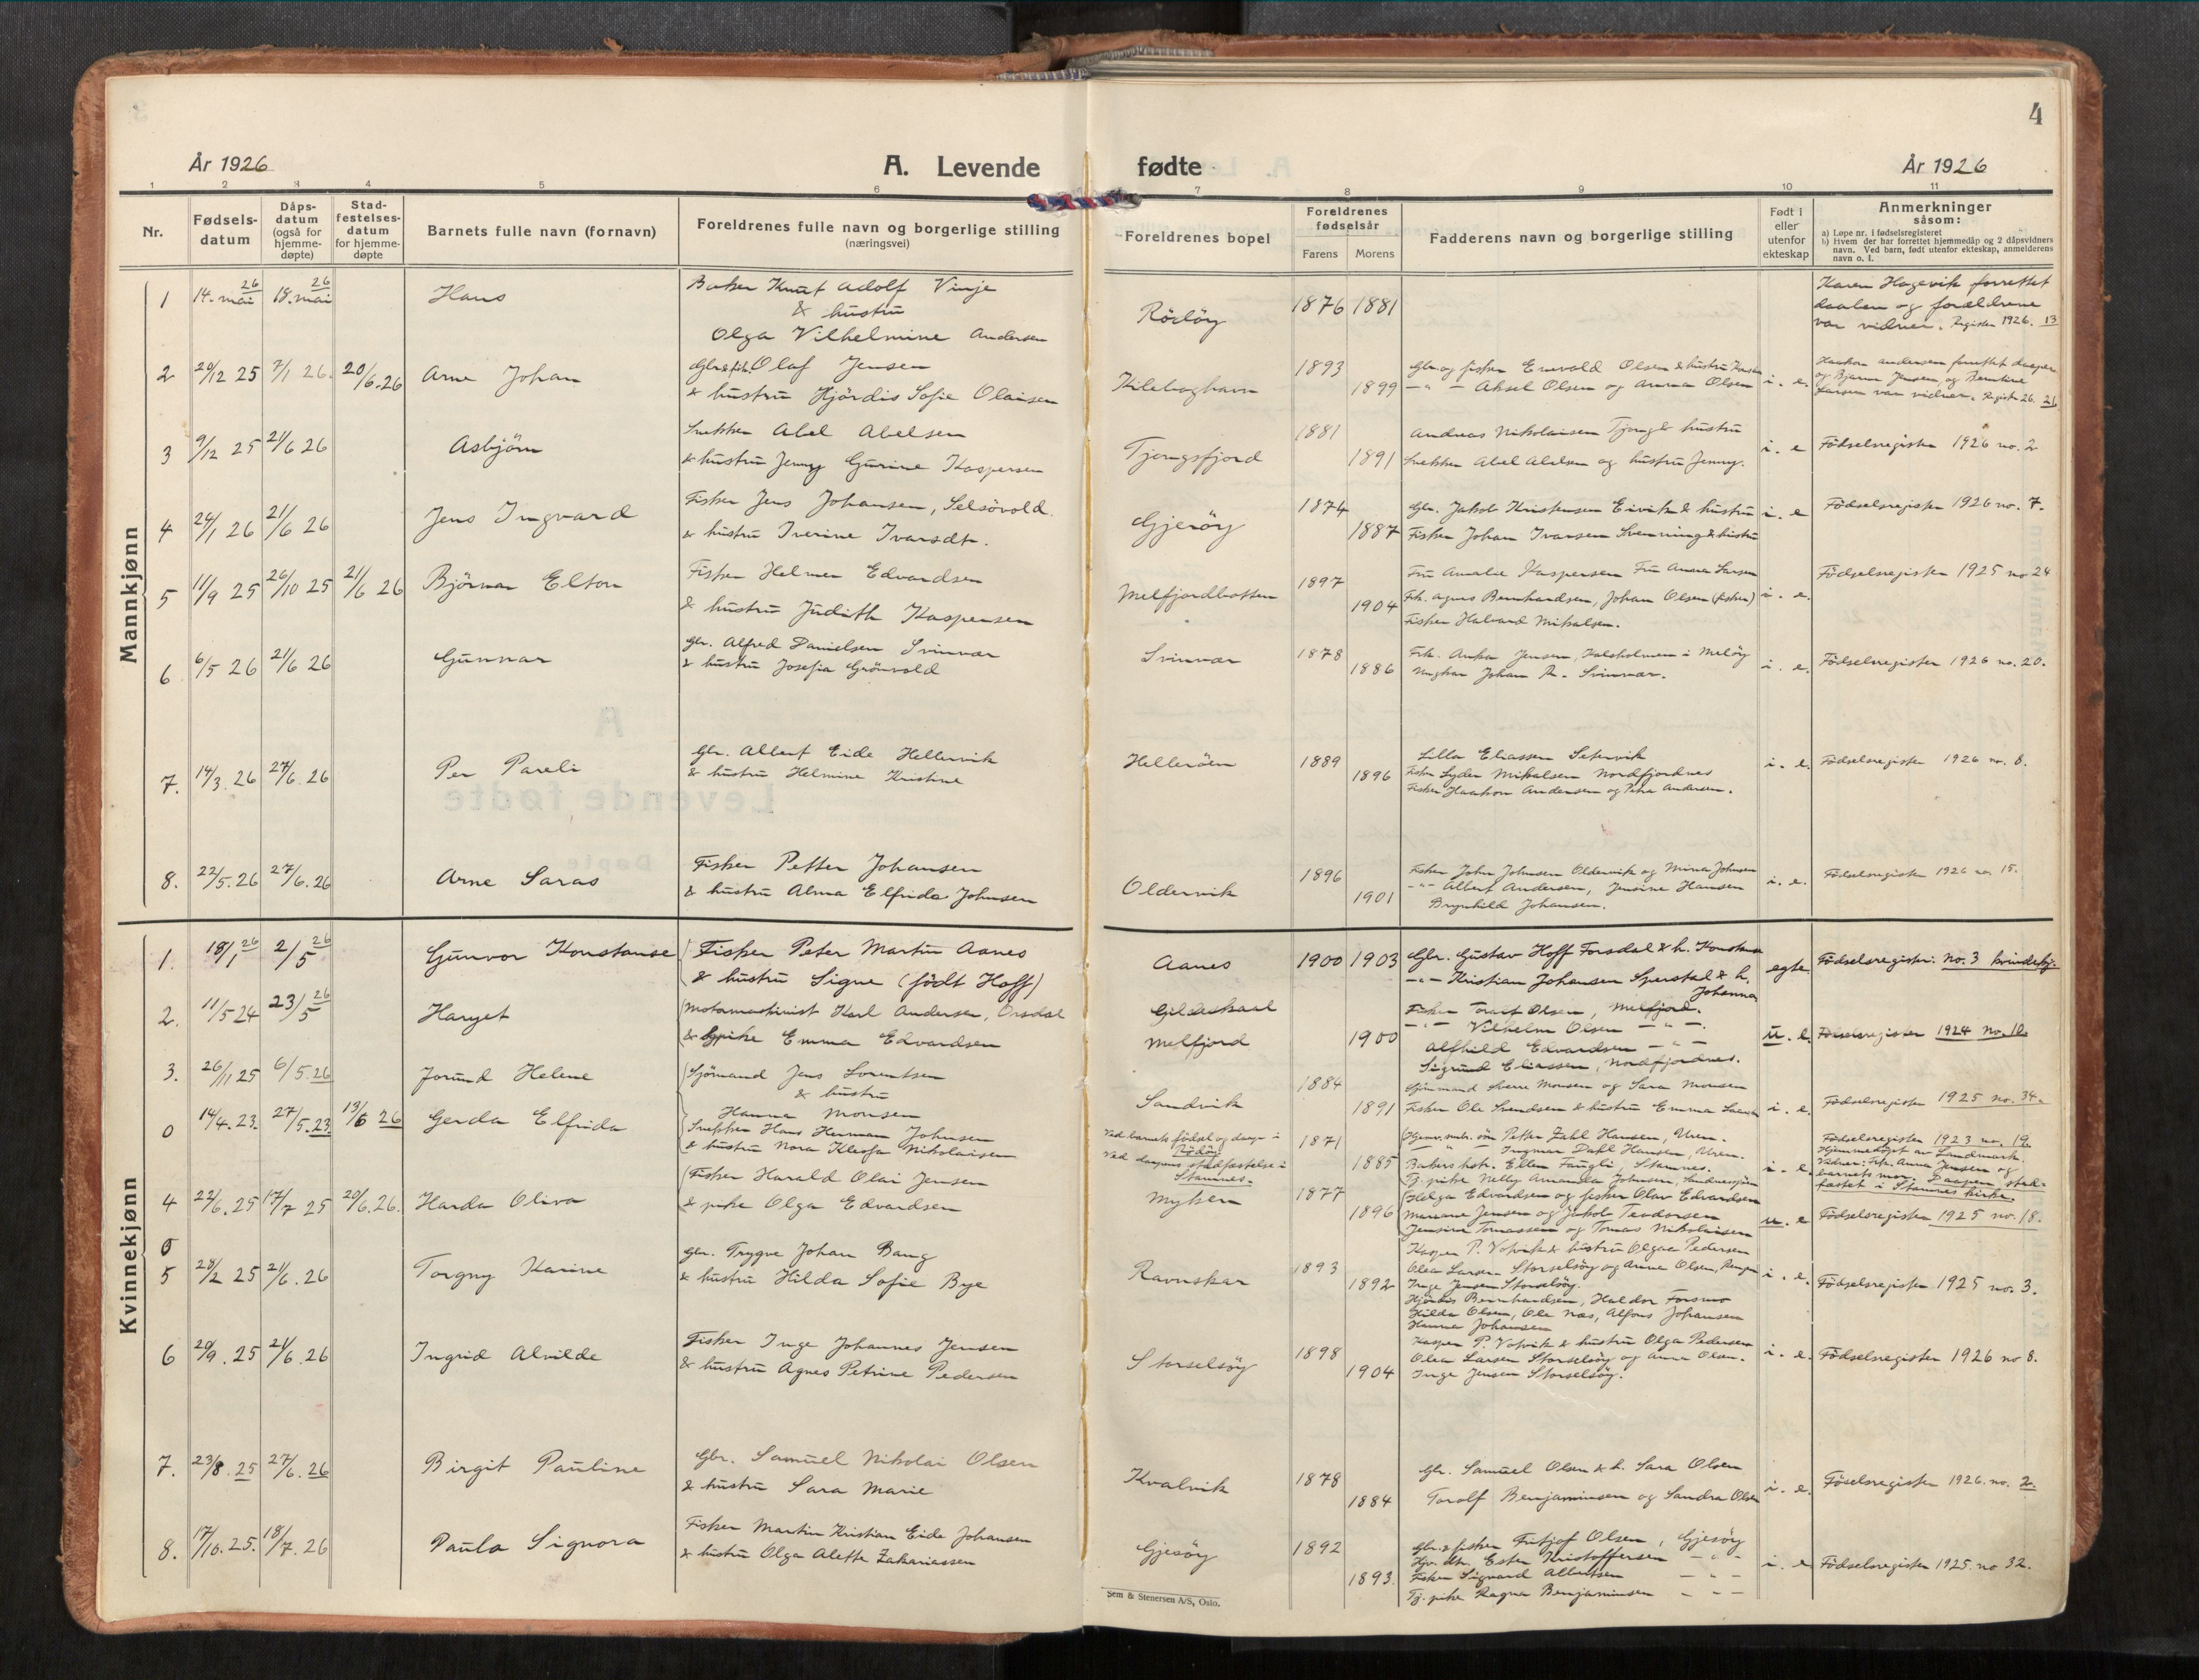 4
År 1926
A. Levende fødte
År 1926
1 2 3 4 5 6 7 8 9 10 11
Nr.
Fødsels-
datum
Dåps-
datum
(også for
hjemme-
døpte)
Stad-
festelses-
datum
for hjemme-
døpte
Barnets fulle navn (fornavn)
Foreldrenes fulle navn og borgerlige stilling
(næringsvei)
Foreldrenes bopel
Foreldrenes
fødselsår
Farens Morens
Fadderens navn og borgerlige stilling
Født i
eller
utenfor
ekteskap
Anmerkninger
såsom:
a) Løpe nr. i fødselsregisteret
b) Hvem der har forrettet hjemmedåp og 2 dåpsvidners
navn. Ved barn, født utenfor ekteskap, anmelderens
navn o. l.
Mannkjønn
1 14. mai 26 18. mai 26 Hans
Baker Knut Adolf Vinje
& hustru
Olga Vilhelmine Andersen
Rödöy 1876 1881
Karen Hagevik forrettet
daaben og forældrene
var vidner. Register 1926. 13
2 29/12 25 7/1 26. 20/6.26 Arne Johan
Gbr & fisk. Olaf Jensen
& hustru Hjördis Sofie Olaisen
Kilboghavn 1893 1899
Gbr. og fisker Envald Olsen & hustru
-"- Aksel Olsen og Anna Olsen
i. e.
Haakon Andersen forrettet daapen
og Bjarne Jensen, og
Larsen var vidner. Registr 26. 26
3 9/12 25 21/6 26 Asbjörn
Snekker Abel Abelsen
& hustru Jenny Gurine Kaspersen
Tjongsfjord 1881 1891
Andreas Nikolaisen Tjong & hustru
Snekker Abel Abelsen og hustru Jenny.
i. e
Födselsregister 1926 no. 2
4 24/1 26 21/6 26 Jens Ingvard
Fisker Jens Johansen, Selsövold.
& hustru Iverine Ivarsdtr.
Gjeröy 1874 1887
Gbr. Jakob Kristensen Eivik & hustru
Fisker Johan Ivarsen Svenning & hustru
i. e
Födselsregister 1926 no. 7.
5 11/9 25 26/10 25 21/6 26 Björnar Elton
Fisker Helmer Edvardsen
& hustru Judith Kaspersen
Melfjordbotten 1897 1904
Fru Amalie Kaspersen Fru Anna Larsen
Frk. Agnes Bernhardsen, Johan Olsen (fisker)
Fisker Halvard Mikalsen.
i. e.
Födselsregister 1925 no 24
6 6/5 26 21/6 26 Gunnar
Gbr. Alfred Danielsen Svinvær
& hustru Josefia Grönvold
Svinvær 1878 1886
Frk. Anka Jensen, Valsholmen i Melöy
Ungkar Johan R. Svinvær.
i. e.
Födselsregister 1926 no. 20.
7. 14/3. 26 27/6. 26 Per Pareli
Gbr. Albert Eide Hellervik
& hustru Helmine Kristine
Helleröen 1889 1896
Lilla Eliassen Setervik
Fisker Lyder Mikalsen Nordfjordnes
Fisker Haakon Andersen og Petra Andersen.
i. e.
Födselsregister 1926 no. 8.
8. 22/5. 26 27/6. 26 Arne Saras
Fisker Petter Johansen
& hustru Alma Elfrida Johnsen
Oldervik 1896 1901
Fisker John Johnsen Oldervik og Mina Johnsen
-"- Albert Andersen, Jensine Hansen
Brynhild Johansen.
i. e.
Födselsregister 1926 no. 15.
Kvinnekjønn
1. 18/1 26 2/5 26 Gunvor Konstanse
Fisker Peter Martin Aanes
& hustru Signe (född Hoff)
Aanes 1900 1903
Gbr. Gustav Hoff Forsdal & h. Konstanse
-"- Kristian Johansen Sperstad & h.
Johanna
egte
Födselsregistr: no. 3 kvindekj.
2. 11/5 24 23/5 26 Haryet
Motormaskinist Karl Andersen, Örsdal
& pike Emma Edvardsen
Gildeskaal
Melfjord 1900
Fisker Toralf Olsen, Melfjord.
-"- Vilhelm Olsen -"-.
Alfhild Edvardsen -"-
Sigrund Eliassen, Nordfjordnes.
u. e.
Födselsregister 1924 no. 10.
3. 26/11 25 6/5. 26 Jorund Helene
Sjömand Jens Lorentsen
& hustru
Hanna Monsen
Sandvik 1884 1891
Sjömand Sverre Monsen og Sara Monsen
Fisker Ole Svendsen & hustru Emma
i. e.
Födselsregister 1925 no. 34.
0 14/4. 23. 27/5. 23 13/6 26 Gerda Elfrida
Snekker Hans Herman Johnsen
& hustru Nora Kleofa Nikolaisen
Ved barnets födsel og daap i
Rödöy
Ved daapens stadfæstelse i
Stamnes.
1871 1885
Petter Zahl Hansen, Uren.
Ingmar Dahl Hansen, Uren.
Bakers hstr. Ellen Faugli, Stamnes.
Tj. pike Nelly Amanda Johnsen,
i. e.
Födselsregister 1923 no. 19.
Hjemmedöpt av Landmark.
Vidner: Frk. Anna Jensen og
barnets mor. Daapen stad-
fæstet i Stamnes kirke.
4 22/6. 25 17/7 25 20/6. 26. Harda Oliva
Fisker Harald Olai Jensen
& pike Olga Edvardsen
Myken 1877 1896
Helga Edvardsen og fisker Olav Edvardsen
Mariane Jensen og Jakob Teodorsen
Jensine Tomassen og Tomas Nikolaisen
u. e
Födselsregister 1925 no. 18.
5 28/2 25 21/6. 26 Torgny Karine
Gbr. Trygve Johan Bang
& hustru Hilda Sofie Bye
Ravnskar 1893 1892
Kasper P. Valvik & hustru Olga Pedersen
Olea Larsen Storselsöy og Anna Olsen,
Inge Jensen Storselsöy.
Hjördis Bernhardsen, Haldor Forsmo
Hilda Olsen, Ole Næs, Alfons Johansen
Hanna Johansen
i. e.
Födselsregister 1925 no. 3.
6 20/9. 25 21/6. 26 Ingrid Alvilde
Fisker Inge Johannes Jensen
& hustru Agnes Petrine Pedersen
Storselsöy 1898 1904
Kasper P. Valvik & hustru Olga Pedersen
Olea Larsen Storselsöy og Anna Olsen.
Inge Jensen Storselsöy.
i. e.
Födselsregister 1926 no 8.
7. 23/8. 25 27/6. 26 Birgit Pauline
Gbr. Samuel Nikolai Olsen
& hustru Sara Marie
Kvalvik 1878 1884
Gbr. Samuel Olsen & h. Sara Olsen
Torolf Benjaminsen og Sandra Olsen
i. e.
Föselsregister 1926. no. 2.
8. 17/10. 25. 18/7. 26 Paula Signora
Fisker Martin Kristian Eide Johansen
& hustru Olga Alette Zakariassen
Gjesöy 1892 1893.
Gbr. & fisker Fritjof Olsen, Gjesöy
Gbr. dtr. Ester Kristoffersen -"-
Fisker Sigvard Albertsen -"-
Tj. pike Ragna Benjaminsen -"-
i. e
Födselsregister 1925. no 32.
Sem & Stenersen A/S, Oslo.